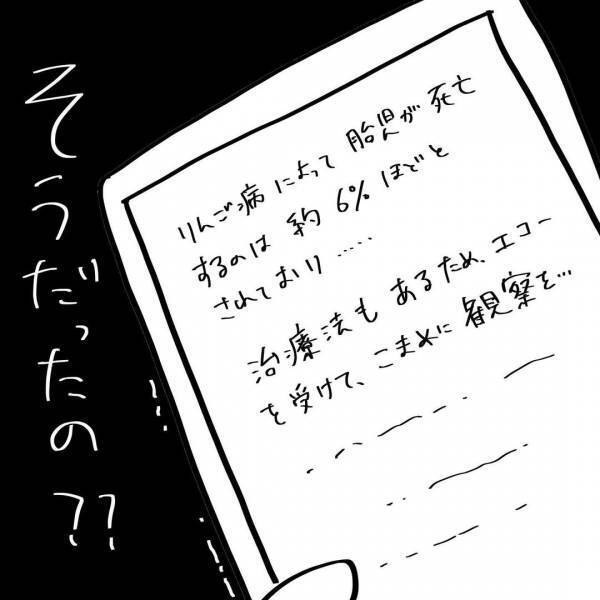 そうだったの??
りんご病によって胎児が死亡
するのは約6%ほどと
されており.....
治療法もあるため、エコー
を受けて、こまめに観察を...